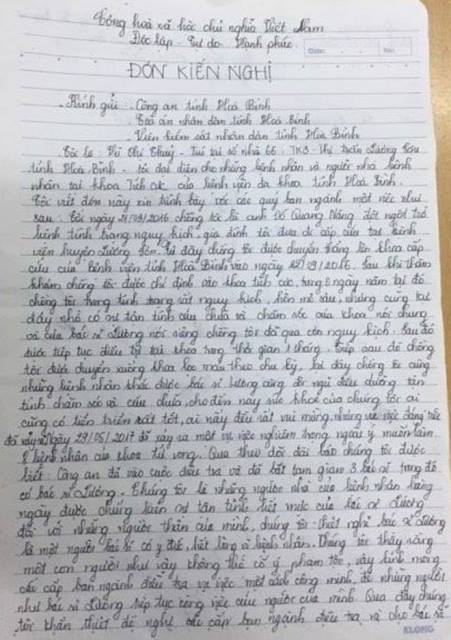 Cộng hoà xã hội chủ nghĩa Việt Nam
Độc lập - Tự do - Hạnh phúc
Date: No:
ĐƠN KIẾN NGHỊ
- Kính gửi: - Công an tỉnh Hoà Bình
- Toà án nhân dân tỉnh Hoà Bình
- Viện kiểm sát nhân dân tỉnh Hoà Bình
Tôi là: Thị Thuỷ - Trú tại số nhà 66 - TK3 - Thị trấn Lương Sơn
tỉnh Hoà Bình - tôi đại diện cho những bệnh nhân và người nhà bệnh
nhân tại khoa Tích cực của bệnh viện đa khoa tỉnh Hoà Bình.
Tôi viết đơn này xin trình bày với các quý ban ngành một việc như
sau: Vào ngày 21/09/2016 chồng tôi là anh Đỗ Quang Năng đột ngột trở
bệnh tình trạng nguy kịch, gia đình tôi đưa đi cấp cứu tại bệnh
viện huyện Lương Sơn. Từ đây chồng tôi được chuyển thẳng lên khoa cấp
cứu của Bệnh viện tỉnh Hoà Bình vào ngày /09/2016. Sau khi thăm
khám chồng tôi được chỉ định vào khoa tích cực, trong 5 ngày nằm tại đó
chồng tôi trong tình trạng rất nguy kịch, hôn mê sâu, nhưng cũng tại
đây nhờ có sự tận tình cứu chữa và chăm sóc của khoa nói chung
và của bác sĩ Lương nói riêng chồng tôi đã qua cơn nguy kịch. Sau đó
được tiếp tục điều trị tại khoa trong thời gian 1 tháng. Tiếp sau đó chồng
tôi được chuyển xuống khoa lọc máu theo chu kỳ, tại đây chồng tôi cùng
những bệnh nhân khác được bác sĩ Lương cùng đội ngũ điều dưỡng tận
tình chăm sóc và cứu chữa, cho đến nay sức khoẻ của chúng tôi ai
cũng có tiến triển rất tốt, ai nấy đều rất vui mừng, nhưng việc đáng tiếc
đã xảy ra Ngày 29/05/2017 đã xảy ra một vụ việc nghiêm trọng ngoài ý muốn làm
8 bệnh nhân của khoa tử vong. Qua theo dõi đài báo chúng tôi được
biết: Công an đã vào cuộc điều tra và đã bắt tạm giam 3 bác sĩ trong đó
có bác sĩ Lương. Chúng tôi là những người nhà của bệnh nhân hàng
ngày được chứng kiến sự tận tình hết mức của bác sĩ Lương
đối với những người thân của mình, chúng tôi thiết nghĩ bác sĩ Lương
là một người bác sĩ có y đức, hết lòng vì bệnh nhân. Chúng tôi thấy rằng
một con người như vậy không thể có ý phạm tội, vậy kính mong
các cấp ban ngành điều tra vụ việc một cách công minh, để những người
như bác sĩ Lương tiếp tục công việc cứu người của mình. Qua đây chúng
tôi khẩn thiết đề nghị các cấp ban ngành điều tra và cho bác sĩ
KLONG